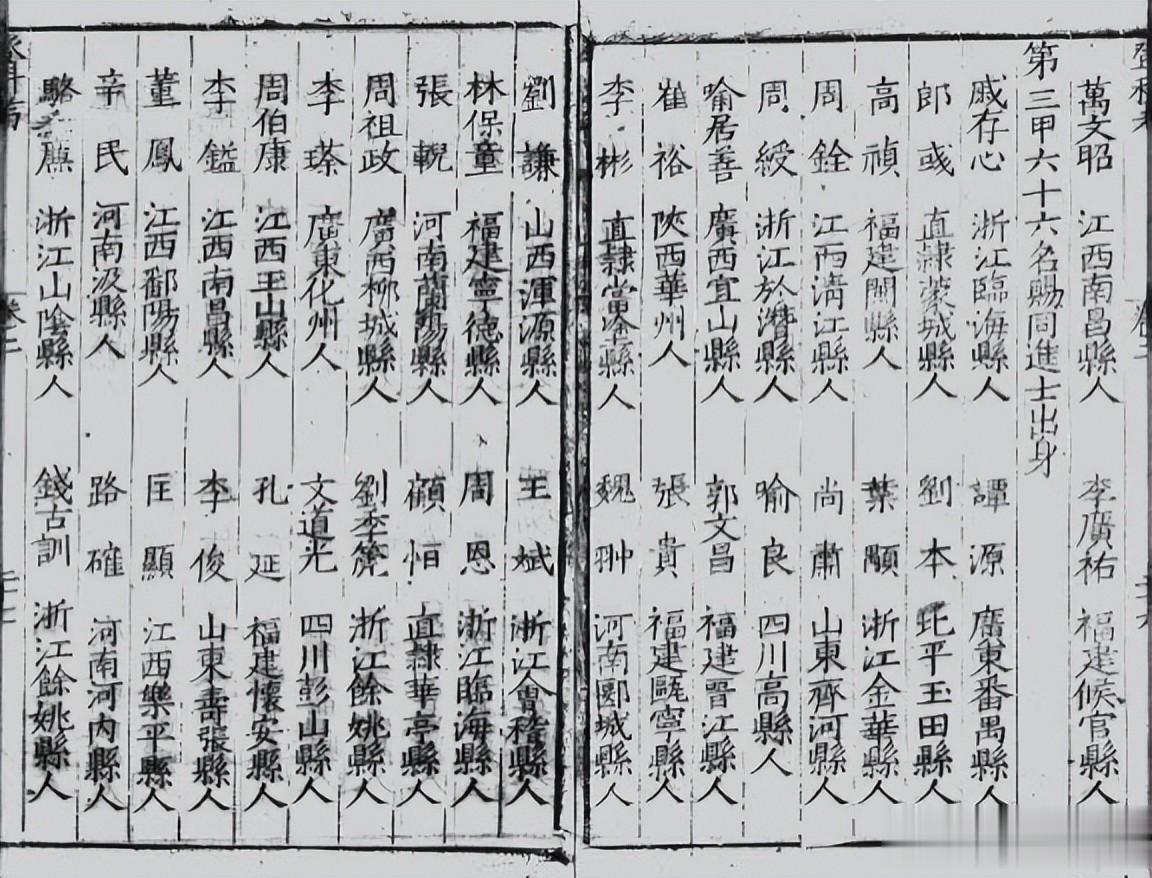 萬文昭 江西南昌縣人 李廣祐 福建候官縣人
第三甲六十六名賜同進士出身
戚存心 浙江臨海縣人 譚源 廣東番禺縣人
郎彧 直隸蒙城縣人 劉本 北平玉田縣人
高禎 福建閩縣人 葉顒 浙江金華縣人
周銓 江西清江縣人 尚肅 山東齊河縣人
周綬 浙江於潛縣人 喻良 四川高縣人
喻居善 廣西宜山縣人 郭文昌 福建晋江縣人
崔裕 陜西華州人 張貴 福建甌寧縣人
李彬 直隸當塗縣人 魏翀 河南郾城縣人
劉謙 山西渾源縣人 王斌 浙江會稽縣人
林保童 福建寧德縣人 周恩 浙江臨海縣人
張輗 河南蘭陽縣人 顧恒 直隸華亭縣人
周祖政 廣西柳城縣人 劉季箎 浙江餘姚縣人
李瑹 廣東化州人 文道光 四川彭山縣人
周伯康 江西玉山縣人 孔延 福建懷安縣人
李鎰 江西南昌縣人 李俊 山東壽張縣人
董鳳 江西鄱陽縣人 匡顯 江西樂平縣人
辛民 河南汲縣人 路確 河南河内縣人
駱 浙江山陰縣人 錢古訓 浙江餘姚縣人
卷二